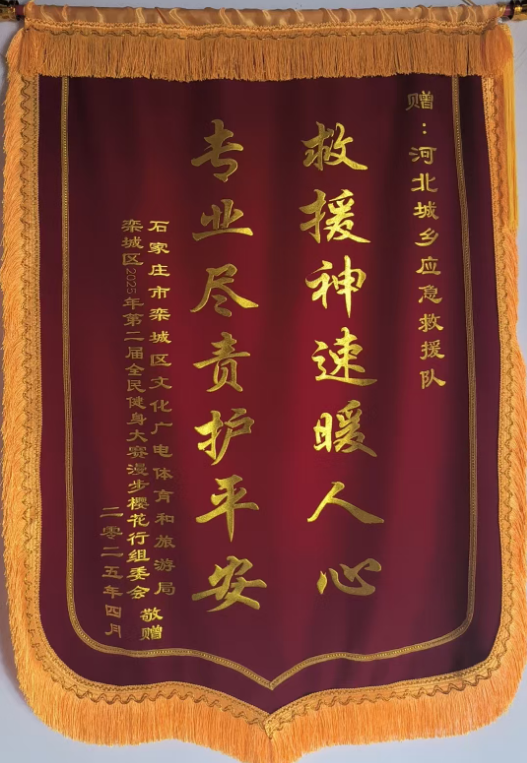 赠：河北城乡应急救援队
救援神速暖人心
专业尽责护平安
石家庄市栾城区文化广电体育和旅游局
栾城区2025年第二届全民健身大赛漫步樱花行组委会
敬赠
二零二五年四月